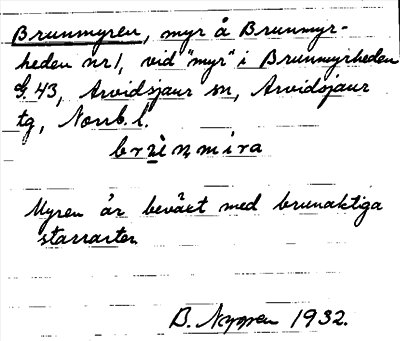 Brunmyren, myr å Brunmyr-
heden nr 1, vid "myr" i Brunmyrheden
G. 43, Arvidsjaur sn, Arvidsjaur
tg, Norrb. l.
Myren är beväxt med brunaktiga
starrarter.
B. Nyppen 1932.